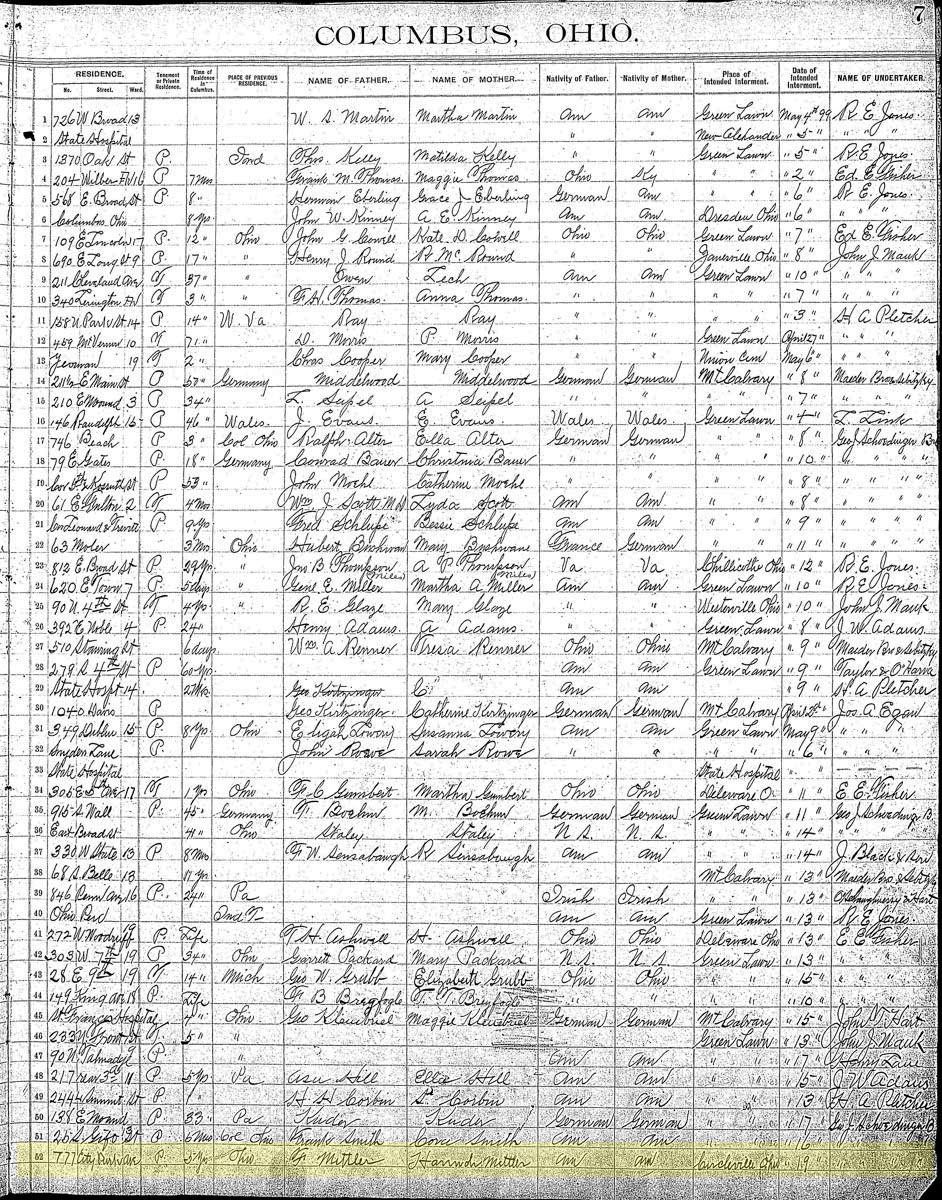 7
COLUMBUS, OHIO.
RESIDENCE. Tenement or Private Residence. Time of Residence in Columbus. PLACE OF PREVIOUS RESIDENCE. NAME OF FATHER. NAME OF MOTHER. Nativity of Father. Nativity of Mother. Place of Intended Interment. Date of Intended Interment. NAME OF UNDERTAKER.
No. Street. Ward.
1 726 W Broad 13 W. S. Martin Martha Martin Am Am Green Lawn May 4th 99 R E Jones
2 State Hospital " " New Alexander " 5 "
3 1370 Oak St P. Ind Thos. Kelly Matilda Kelly " " Green Lawn " 5 " R. E. Jones
4 204 Wilber 16 P 7 Mos Frank M. Thomas Maggie Thomas Ohio Ky " " " 2 " Ed. E. Fisher
5 568 E. Broad St P 8 " Herman Eberling Grace J. Eberling German Am " " " 6 " R E. Jones
6 Columbus Ohio 8 yrs John W. Kinney A E. Kinney Am Am Dresden Ohio " 6 " " " "
7 109 E Lincoln 17 P. 12 " Ohio John G. Cowell Kate D. Cowell Ohio Ohio Green Lawn " 7 " Ed E. Fisher
8 690 E Long St 9 P 17 " " Henry J Round R. Mc Round " " Zanesville Ohio " 8 " John J Mauk
9 211 Cleveland Ave T 37 " " Owen Zech Am Am Green Lawn " 10 " " " "
10 340 Lexington Av T 3 " " F. H. Thomas Anna Thomas " " " " " 7 " " " "
11 158 N. Park St 14 P 14 " W. Va Ray Ray " " " " " 3 " H. A Pletcher
12 459 McVernon 10 T 71 " D. Morris P. Morris " " Green Lawn April 27 " " " "
13 Yeoman 19 T 2 " Chas Cooper Mary Cooper " " Union Cem May 6 " " " "
14 211½ E Main St P 57 " Germany Middelwood Middelwood German German Mt Calvary " 8 " Maeder Bros
15 210 E Mound 3 P 34 " Z. Seipel A Seipel " " " " " 7 " " " "
16 146 Randolph 15 P 46 " Wales J. Evans E. Evans Wales Wales Green Lawn " 4 " L. Link
17 746 Beach P 3 " Col Ohio Ralph Alter Ella Alter German German " " " 8 " Geo J Schoedinger
18 79 E Gates P. 18 " Germany Conrad Bauer Christinia Bauer " " " " " 10 " " " "
19 P 53 " John Moehl Catherine Moehl " " " " " 8 " " " "
20 61 E Fulton 2 T 4 Mos Wm J Scott M D Lyda Scott Am Am " " " 8 " " " "
21 Cor Leonard P 9 yrs Fred Schlupe Bessie Schlupe Am Am " " " 9 " " " "
22 63 Moler 3 Mos Ohio Hubert Mary France German " " " 11 " " " "
23 812 E Broad St P 29 yrs " Jno B Thompson A P. Thompson Va Va Chillicothe Ohio " 12 " R. E. Jones
24 620 E Town 7 P 5 days " Genl E. Miller (Niles) Martha A Miller (Niles) Am Am Green Lawn " 10 " R E Jones
25 90 N. 4th St T 4 yrs " R. E. Glaze Mary Glaze " " Westerville Ohio " 10 " John J Mauk
26 392 E Noble 4 P. 24 " Henry Adams A Adams " " Green Lawn " 8 " J. W Adams
27 510 St 6 days Wm. A Renner Tresa Renner Ohio Ohio Mt Calvary " 9 " Maeder Bro
28 279 S 4th St P 60 yrs Am Am Green Lawn " 9 " Taylor & O'Hara
29 State Hospt 14. 27 Geo Kirtzinger C " Am Am " 9 " H. A Pletcher
30 1040 Davis P Geo Kirtzinger Catherine Kirtzinger German German Mt Calvary April Jos. A Egan
31 349 15 P. 8 yrs Ohio Elijah Lowery Susanna Lowery Am Am Green Lawn May 9 " " " "
32 Snyder Lane P. John Rowe Sarah Rowe " " " " " 6 " " " "
33 State Hospital State Hospital " " — — — —
34 305 E 5th Ave 17 T 1 yr Ohio F. C Gumbert Martha Gumbert Ohio Ohio Deleware O. " 11 " E. E. Fisher
35 915 S Wall P. 45 " Germany T. Boehm M. Boehm German German Green Lawn " 11 " Geo J Schoedinger B
36 East Broad St 41 " Ohio Staley Staley N. S. N. S. " " " 14 " " " "
37 330 W State 13 P 8 Mos F. W. Sensabaugh R Sensabaugh Am Am " " " 14 " J. Black & Son
38 68 S. Belle 13 11 yr Mt Calvary " 13 " Maeder Bro
39 846 Penn Ave 16 P. 24 " Pa Irish Irish " " " 13 " O'Shaughnessy & Hart
40 Ohio Pen Ind T Am Am Green Lawn " 13 " R. E. Jones
41 272 W. Woodruff P. Life T. H. Ashwell H. Ashwell Ohio Ohio Delaware Oh " 13 " E. E Fisher
42 303 W. 7th 19 P 34 " Ohio Garrett Packard Mary Packard N. S. N. S. Green Lawn " 13 " " "
43 28 E 9th 19 T 14 " Mich Geo W. Grubb Elizabeth Grubb Ohio Ohio " " " 15 " " "
44 149 King av 18 P. Life F B Breyfogle T. T. Breyfogle " " " " " 10 " " "
45 St Francis Hospital 7 " Ohio Geo Maggie German German Mt Calvary " 15 " John T Hart
46 233 N Front St T 5 " " Green Lawn " 13 " John J Mauk
47 90 N. P " Am Am " " " 17 " Henry
48 217 rear 3rd 11 P 5 yrs Pa Asa Hill Ella Hill Am Am " " " 15 " J. W Adams
49 2444 Summit St P 1 " H H Corbin S. Corbin Am Am " " " 13 " H. A Pletcher
50 138 E Mound P 33 " Pa Kuder Kuder German German " " " 17 " Geo J Schoedinger B
51 25 S. St P 5 Mos Col Ohio Frank Smith Cora Smith Am Am " " " 16 " " " "
52 777 City Park Ave P 5 yr Ohio G Mettler Hannah Mettler Am Am Circleville Ohio " 19 " " " "